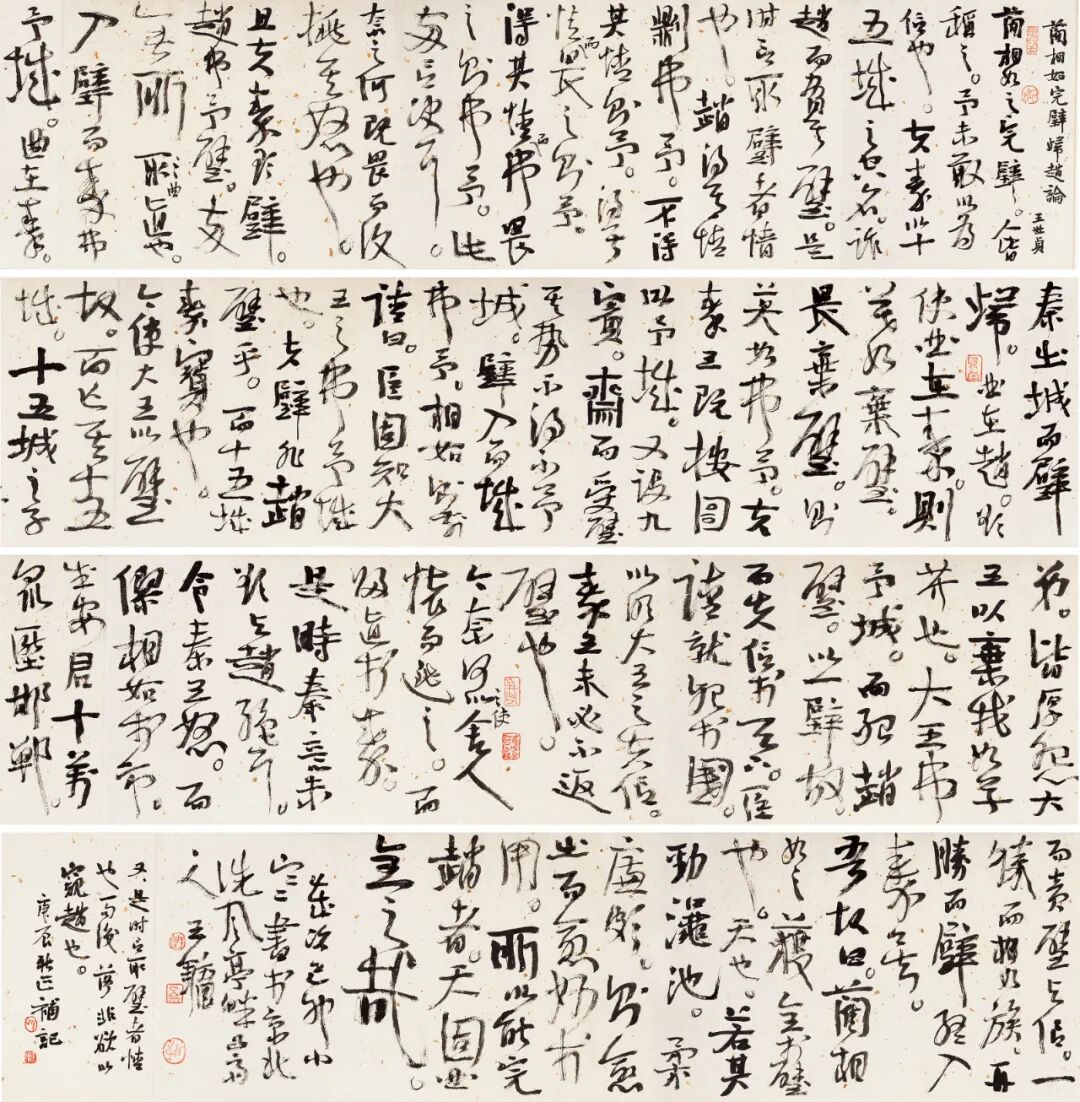 藺相如完璧歸趙論 王世貞
藺相如之完璧。人皆
稱之。予未敢以為
信也。夫秦以十
五城之空名。詐
趙而脅其璧。是
時言取璧者情
也。趙得其情
則弗予。不得
其情則予。得其
情而畏之則予。
得其情而弗畏
之則弗予。此
兩言決耳。
奈之何既畏而復
挑其怒也。
且夫秦欲璧。
趙弗予璧。兩
無所曲直也。
入璧而秦弗
予城。曲在秦。
秦出城而璧
歸。曲在趙。欲
使曲在秦。則
莫如棄璧。
畏棄璧。則
莫如弗予。夫
秦王既按圖
以予城。又設九
賓。齋而受璧
其勢不得不予
城。璧入而城
弗予。相如則前
請曰。臣固知大
王之弗予城
也。夫璧非趙
璧乎。而十五城
秦寶也。
今使大王以璧
故。而亡其十五
城。十五城之子
弟。皆厚怨大
王以棄我如草
芥也。大王弗
予城。而紿趙
璧。以一璧故
而失信於天下。臣
請就死於國。
以明大王之失信。
秦王未必不返
璧也。
今奈何使舍人
懷而逃之。而
歸直於秦。
是時秦意未
欲與趙絕耳。
令秦王怒。而
僇相如於市。
武安君十萬
眾壓邯鄲。
而責璧與信。一
勝而相如族。再
勝而璧終入
秦矣。
吾故曰。藺相
如之獲全於璧
也。天也。若其
勁澠池。柔
廉頗。則愈
出而愈妙於
用。所以能完
趙者。天固曲
全之哉
歲次己卯小
寒二書於京北
洗風亭
之 王鏞
又是時言取璧者情
也一句後落非欲以
窺趙也。
庚辰秋 補記